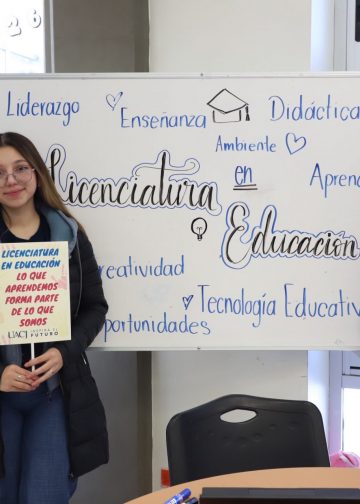 Liderazgo
Enseñanza
Didáctica
Ambiente
en
Licenciatura
Educación
Tecnología Educativ
LICENCIATURA
EN EDUCACIÓN
LO QUE
APRENDEMOS
FORMA PARTE
DE LO QUE
SOMOS
UACJ INSPIRA EL FUTURO